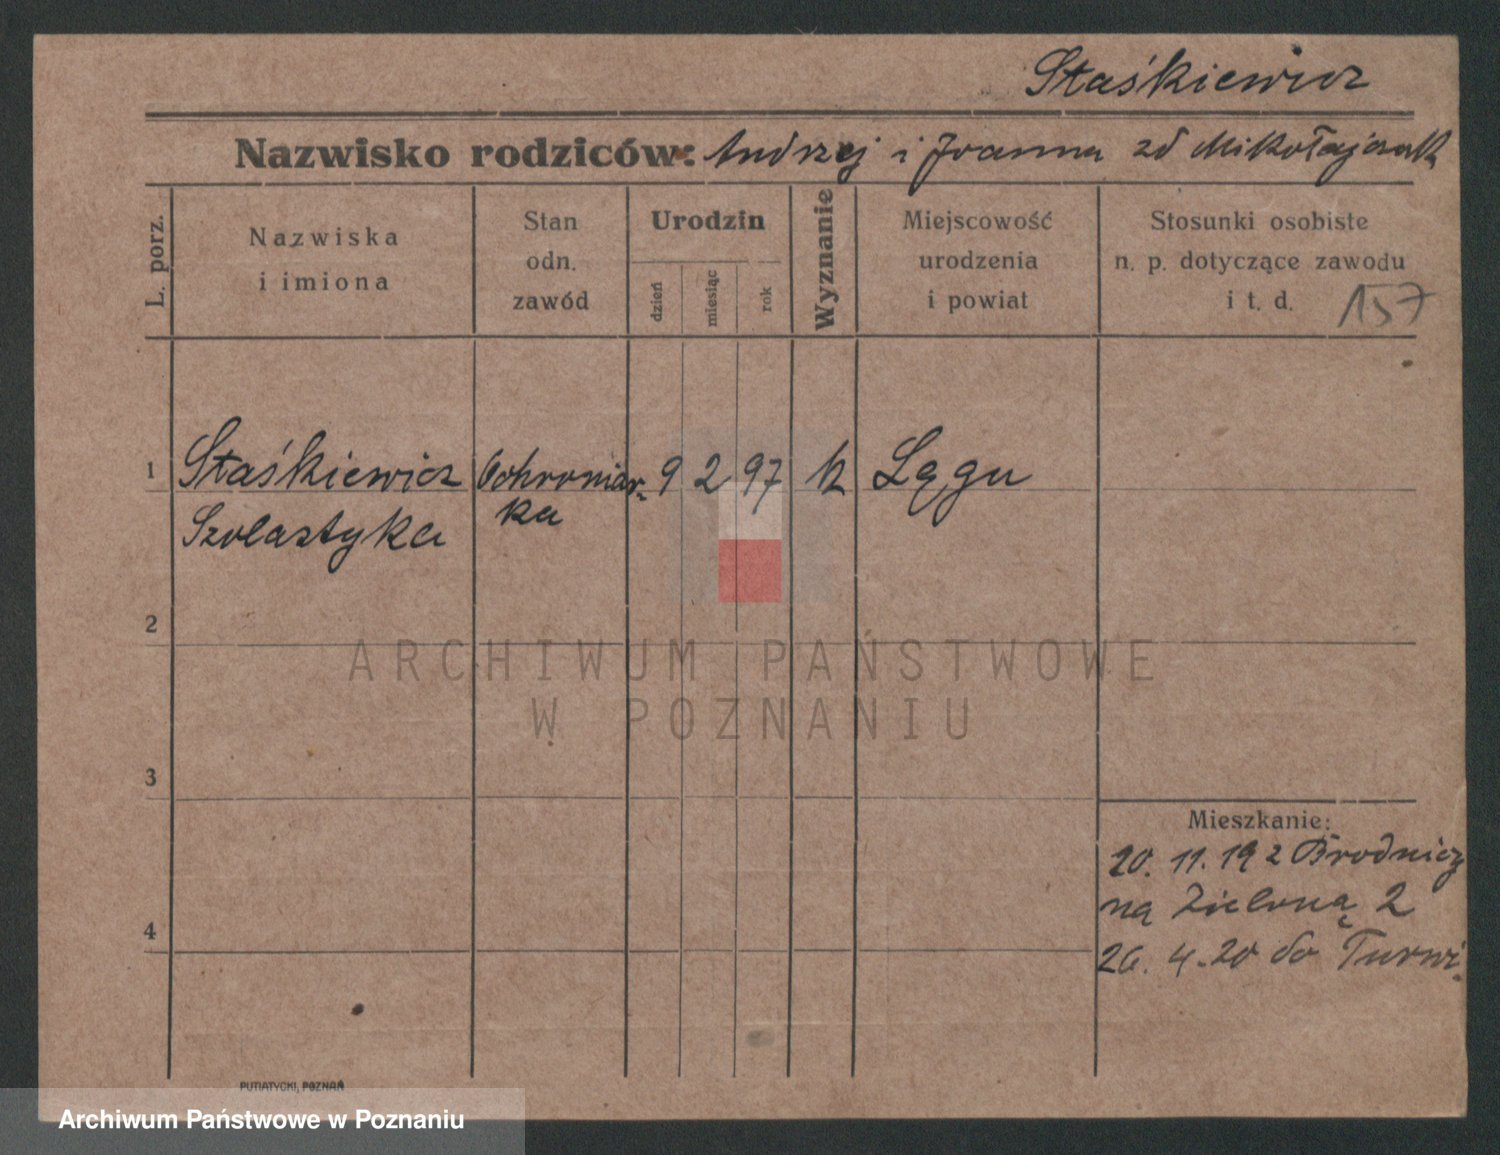 Staśkiewicz
Nazwisko rodziców: Andrzej i Joanna zd Mikołajczak
L. porz.
Nazwiska
i imiona
Stan
odn.
zawód
Urodzin
dzień
miesiąc
rok
Wyznanie
Miejscowość
urodzenia
i powiat
Stosunki osobiste
n. p. dotyczące zawodu
i t. d. 157
1 Staśkiewicz Ochroniar- 9 2 97 k Łęgu
Szolastyka ka
2
ARCHIWUM PAŃSTWOWE
W POZNANIU
3
Mieszkanie:
20. 11. 19 z Brodnicy
na Zieloną 2
4
26. 4. 20 do Turwi
PUTIATYCKI, POZNAŃ
Archiwum Państwowe w Poznaniu